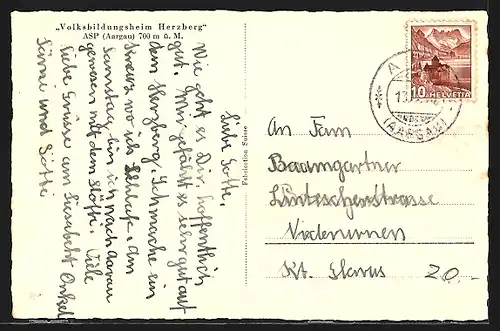 „Volksbildungsheim Herzberg"
ASP (Aargau) 700 m ü. M.
Liebe Gotte.
Wie geht es Dir, hoffentlich
gut. Mir gefällt es sehr gut auf
dem Herzberg. Ich mache ein
Kreuz wo ich schlafe. Am
Samstag bin ich nach Aarau
gewesen mit dem Götti. Viele
liebe Grüsse am Elisabeth Onkel
und Götti
Fabrikation Suisse
10 HELVETIA
(AARGAU)
An Fam
Baumgartner
Lintescherstrasse
Niederurnen
Kt. Glarus
20.-